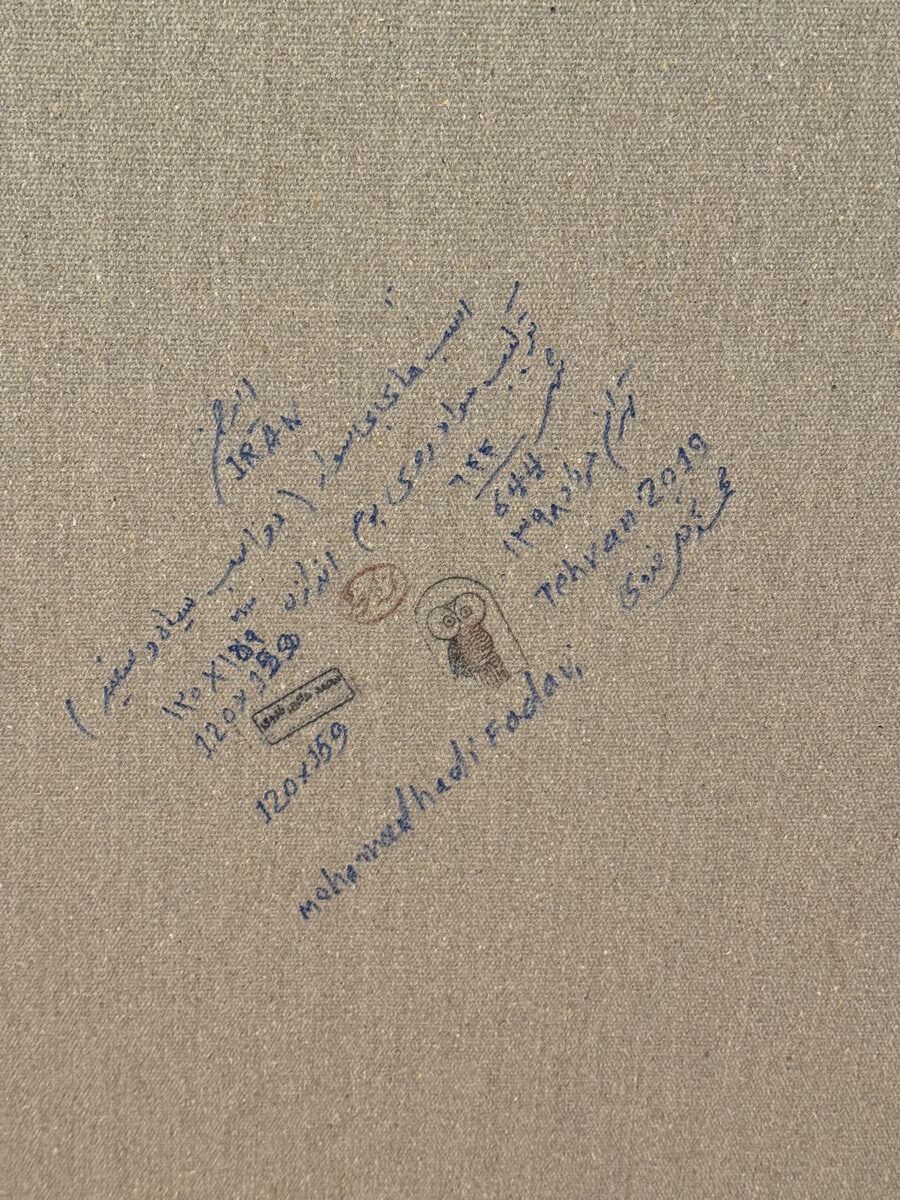 ایران
IRAN
اسب های بی سوار (دو اسب سیاه و سفید)
ترکیب مواد روی بوم اندازه
۱۲۰X۱۵۹
120x159
120x159
۶۴۴
644
تهران مرداد ۱۳۹۸
Tehran 2019
محمد هادی فدوی
محمد هادی فدوی
mohammadhadi Fadavi